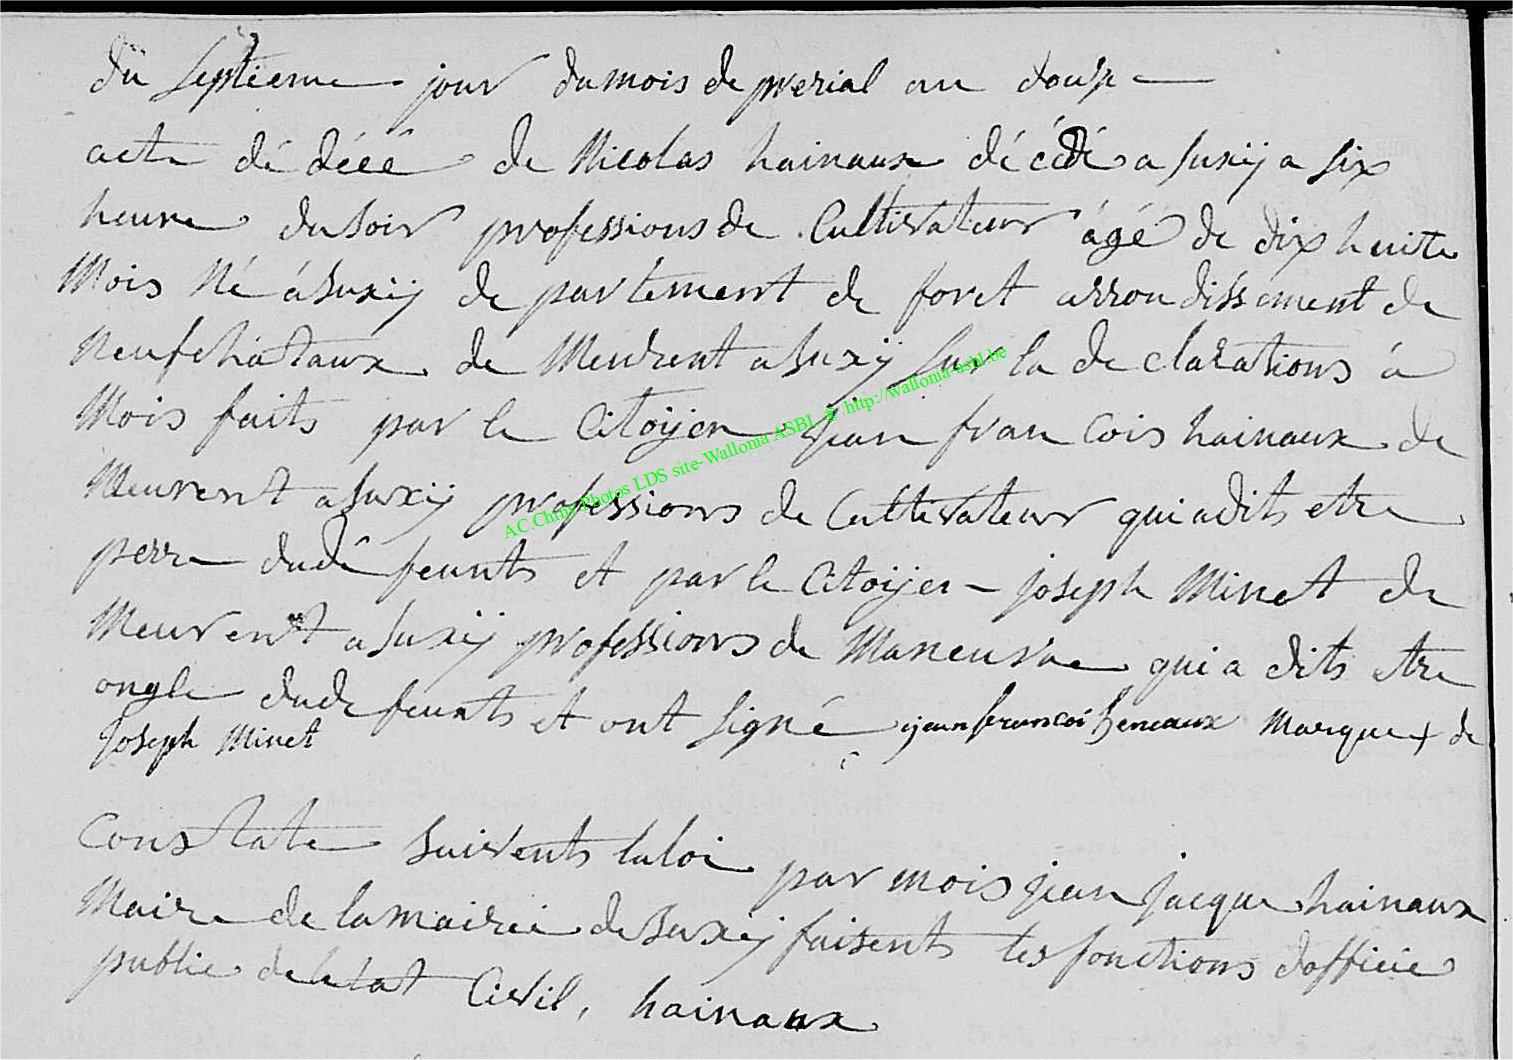 du septieme jour du mois de prerial an douze
acte dé décé de Nicolas hainaux décédé a suxÿ a six
heure du soir professions de Cultivateur âgé de dix huite
Mois Né á suxÿ de partement de foret arrondissement de
Neufchataux de Meurent a suxÿ sur la de clarations á
Mois faits par le Citoÿen jean fran cois hainaux de
Meurent a suxÿ professions de Cultivateur qui a dits etre
perre du dé feunts et par le Citoÿen joseph Minet de
Meurent a suxÿ professions de Maneuvre qui a dits etre
ongle du de feunts et ont signé jean francoi heneaux Marque + de
Joseph Minet
Constate suivents la loi par mois jean jacque hainaux
Maire de la mairie de suxÿ faisents les fonctions d officie
public de letat Civil, hainaux
AC Chiny Photos LDS site-Wallonia ASBL http://wallonia-asbl.be